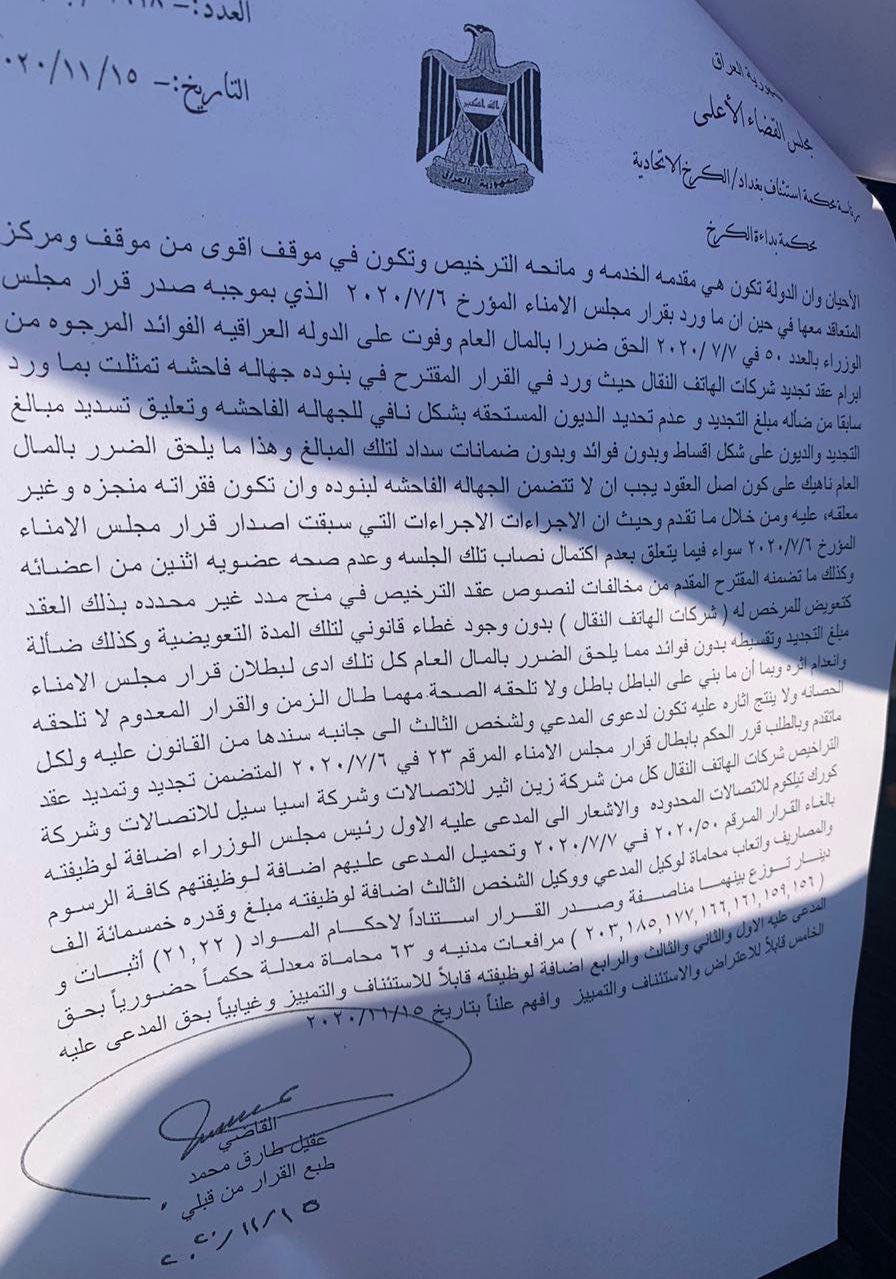 العدد:-
التاريخ:- ٢٠٢٠/١١/١٥
جمهورية العراق
مجلس القضاء الأعلى
رئاسة محكمة استئناف بغداد/الكرخ الاتحادية
محكمة بداءة الكرخ
الله اكبر
جمهورية العراق
الأحيان وان الدولة تكون هي مقدمه الخدمه و مانحه الترخيص وتكون في موقف اقوى من موقف ومركز
المتعاقد معها في حين ان ما ورد بقرار مجلس الامناء المؤرخ ٢٠٢٠/٧/٦ الذي بموجبه صدر قرار مجلس
الوزراء بالعدد ٥٠ في ٢٠٢٠/٧/٧ الحق ضررا بالمال العام وفوت على الدوله العراقيه الفوائد المرجوه من
ابرام عقد تجديد شركات الهاتف النقال حيث ورد في القرار المقترح في بنوده جهاله فاحشه تمثلت بما ورد
سابقا من ضأله مبلغ التجديد و عدم تحديد الديون المستحقه بشكل نافي للجهاله الفاحشه وتعليق تسديد مبالغ
التجديد والديون على شكل اقساط وبدون فوائد وبدون ضمانات سداد لتلك المبالغ وهذا ما يلحق الضرر بالمال
العام ناهيك على كون اصل العقود يجب ان لا تتضمن الجهاله الفاحشه لبنوده وان تكون فقراته منجزه وغير
معلقه، عليه ومن خلال ما تقدم وحيث ان الاجراءات الاجراءات التي سبقت اصدار قرار مجلس الامناء
المؤرخ ٢٠٢٠/٧/٦ سواء فيما يتعلق بعدم اكتمال نصاب تلك الجلسه وعدم صحه عضويه اثنين من اعضائه
وكذلك ما تضمنه المقترح المقدم من مخالفات لنصوص عقد الترخيص في منح مدد غير محدده بذلك العقد
كتعويض للمرخص له ( شركات الهاتف النقال ) بدون وجود غطاء قانوني لتلك المدة التعويضية وكذلك ضألة
مبلغ التجديد وتقسيطه بدون فوائد مما يلحق الضرر بالمال العام كل تلك ادى لبطلان قرار مجلس الامناء
وانعدام اثره وبما أن ما بني على الباطل باطل ولا تلحقه الصحة مهما طال الزمن والقرار المعدوم لا تلحقه
الحصانه ولا ينتج اثاره عليه تكون لدعوى المدعي ولشخص الثالث الى جانبه سندها من القانون عليه ولكل
ماتقدم وبالطلب قرر الحكم بابطال قرار مجلس الامناء المرقم ٢٣ في ٢٠٢٠/٧/٦ المتضمن تجديد وتمديد عقد
التراخيص شركات الهاتف النقال كل من شركة زين اثير للاتصالات وشركة اسيا سيل للاتصالات وشركة
كورك تيلكوم للاتصالات المحدوده والاشعار الى المدعى عليه الاول رئيس مجلس الوزراء اضافة لوظيفته
بالغاء القرار المرقم ٢٠٢٠/٥٠ في ٢٠٢٠/٧/٧ وتحميل المدعى عليهم اضافة لوظيفتهم كافة الرسوم
والمصاريف واتعاب محاماة لوكيل المدعي ووكيل الشخص الثالث اضافة لوظيفته مبلغ وقدره خمسمائة الف
دينار توزع بينهما مناصفة وصدر القرار استناداً لاحكام المواد ( ٢١,٢٢) أثبات و
( ٢٠٣,١٨٥,١٧٧,١٦٦,١٦١,١٥٩,١٥٦ ) مرافعات مدنيه و ٦٣ محاماة معدلة حكماً حضورياً بحق
المدعى عليه الاول والثاني والثالث والرابع اضافة لوظيفته قابلاً للاستئناف والتمييز وغيابياً بحق المدعى عليه
الخامس قابلاً للاعتراض والاستئناف والتمييز وافهم علناً بتاريخ ٢٠٢٠/١١/١٥
القاضي
عقيل طارق محمد
طبع القرار من قبلي
٢٠٢٠/١١/١٥